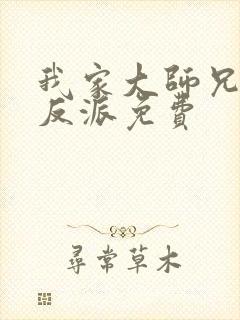 我家大師兄
反派免費
尋常草木